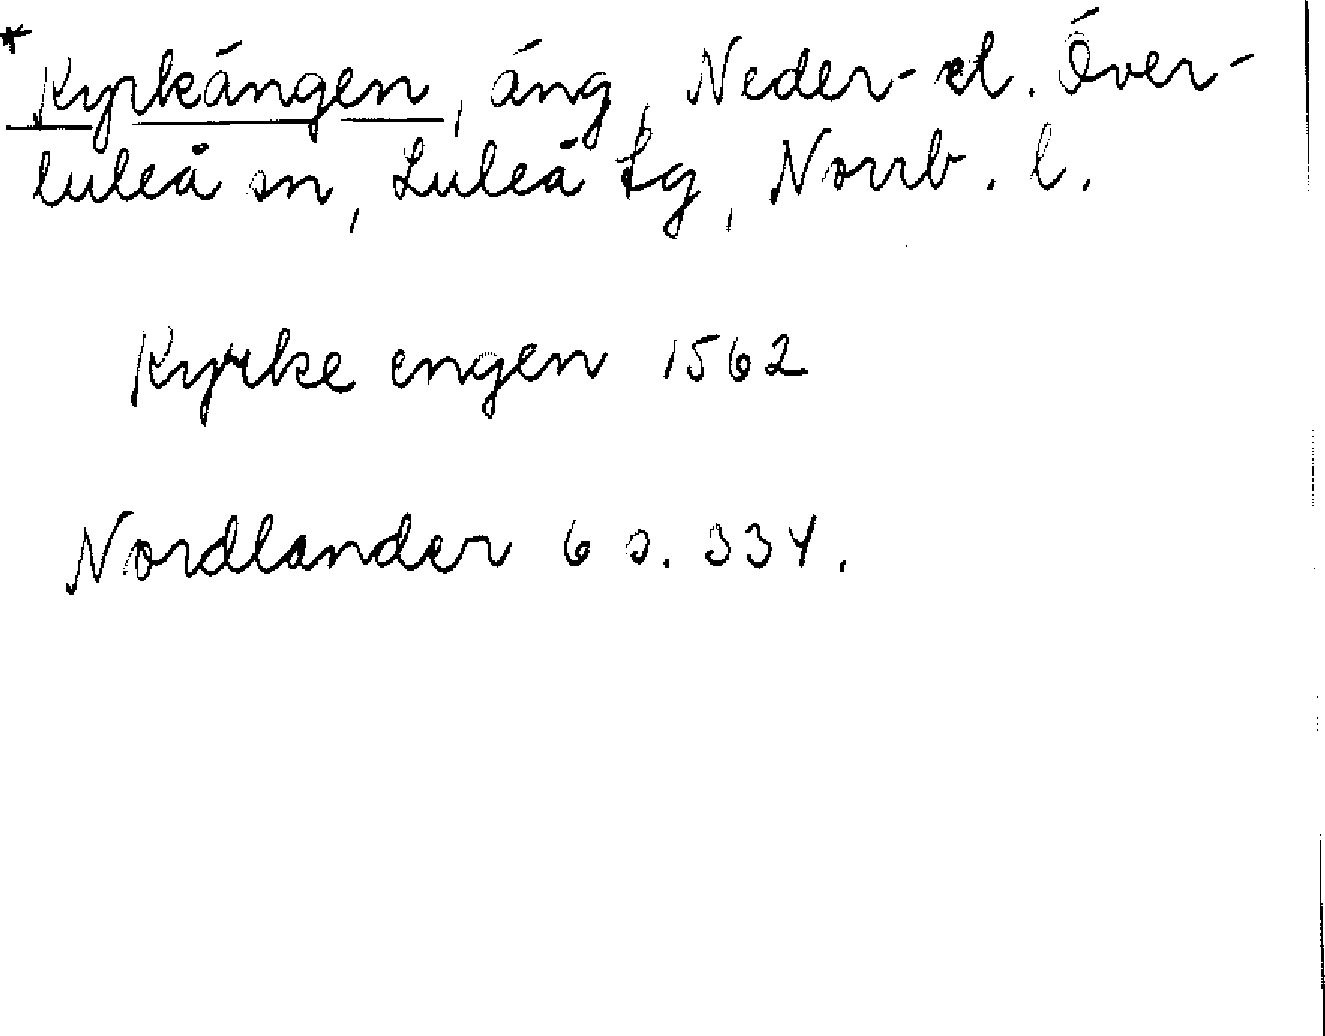 *Kyrkängen, äng, Neder- el. Över-
luleå sn, Luleå tg, Norrb. l.
Kyrke engen 1562
Nordlander 6 s. 334.